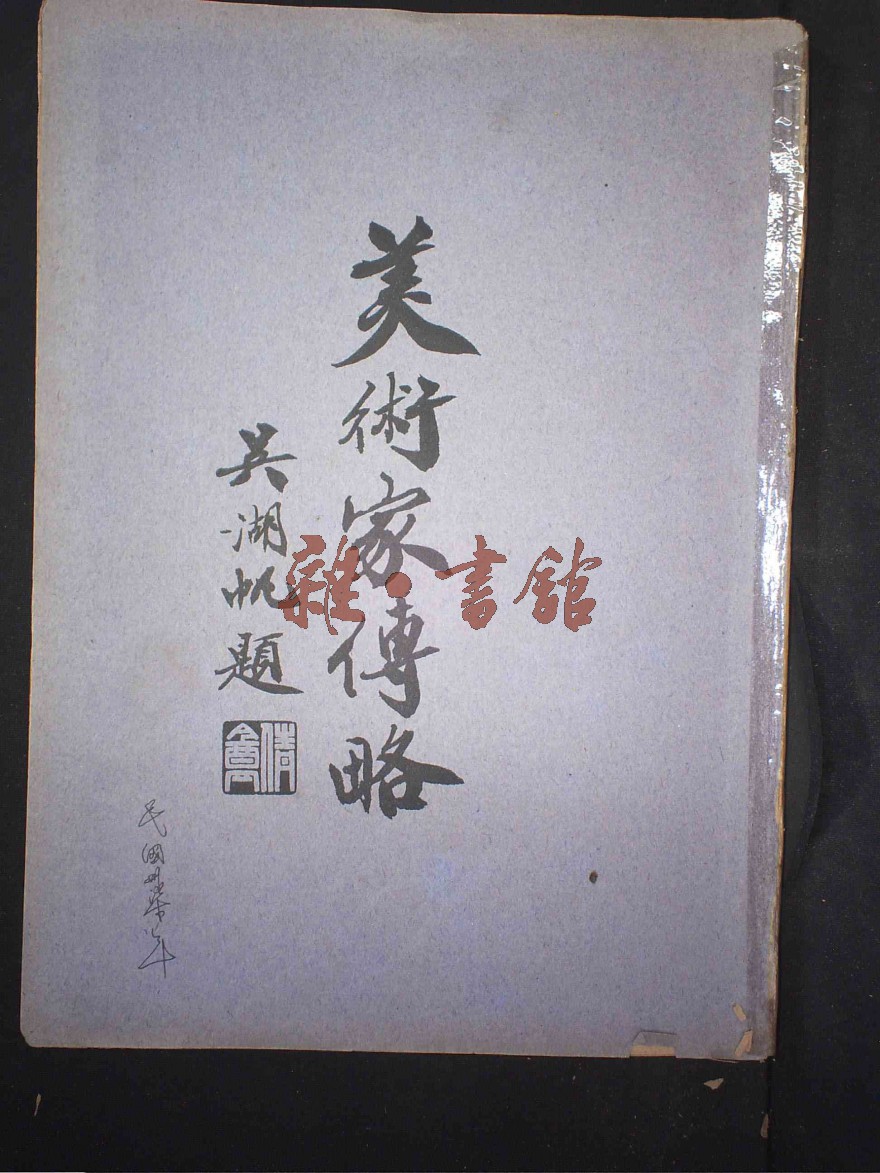 美術家傳略
吳湖帆題
倩盦
雜·書館
民國卅六年